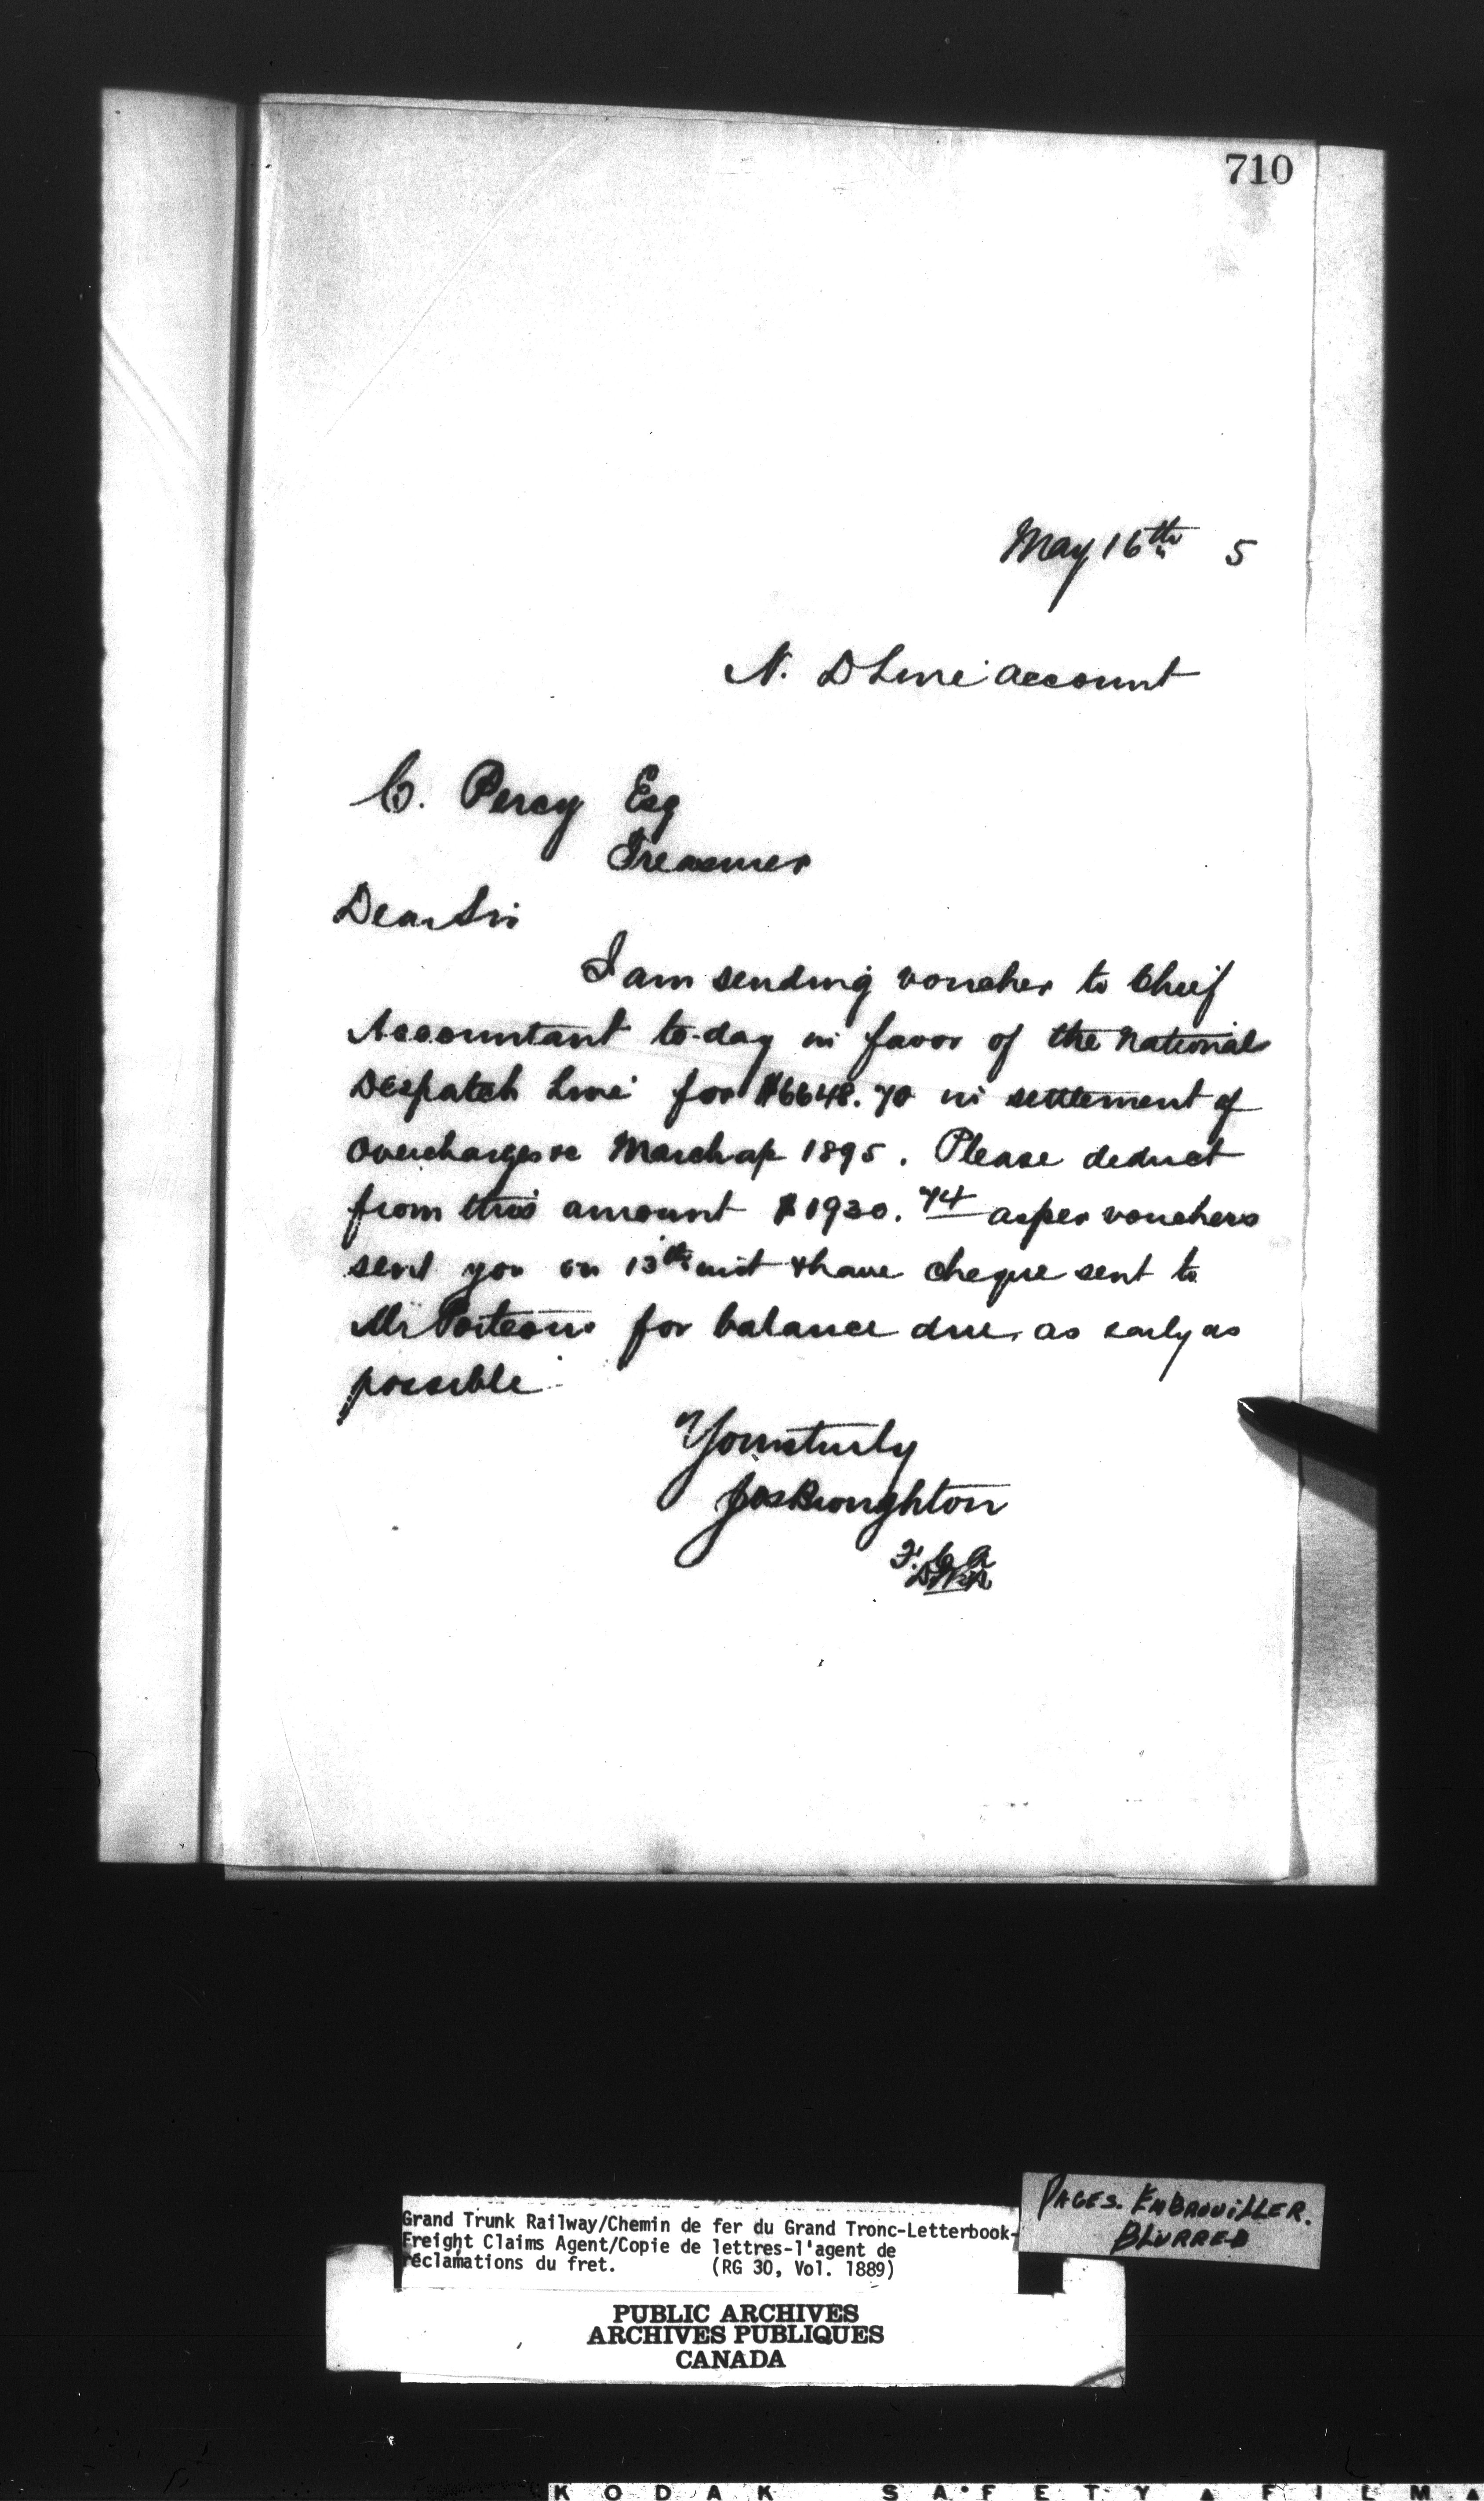 710
May 16th 5
N. D Line account
C. Percy Esq
Treasurer
Dear Sir
I am sending voucher to Chief
Accountant to-day in favor of the National
Despatch Line for $6648.70 in settlement of
Overcharges ac March ap 1895. Please deduct
from this amount $1930.74 as per vouchers
sent you on 13th inst & have cheque sent to
Mr Porteous for balance due, as early as
possible
Yours truly
Jas Broughton
F. C. A
Grand Trunk Railway/Chemin de fer du Grand Tronc-Letterbook-
Freight Claims Agent/Copie de lettres-l'agent de
réclamations du fret. (RG 30, Vol. 1889)
PAGES. EMBROUILLER.
BLURRED
PUBLIC ARCHIVES
ARCHIVES PUBLIQUES
CANADA
KODAK SAFETY FILM